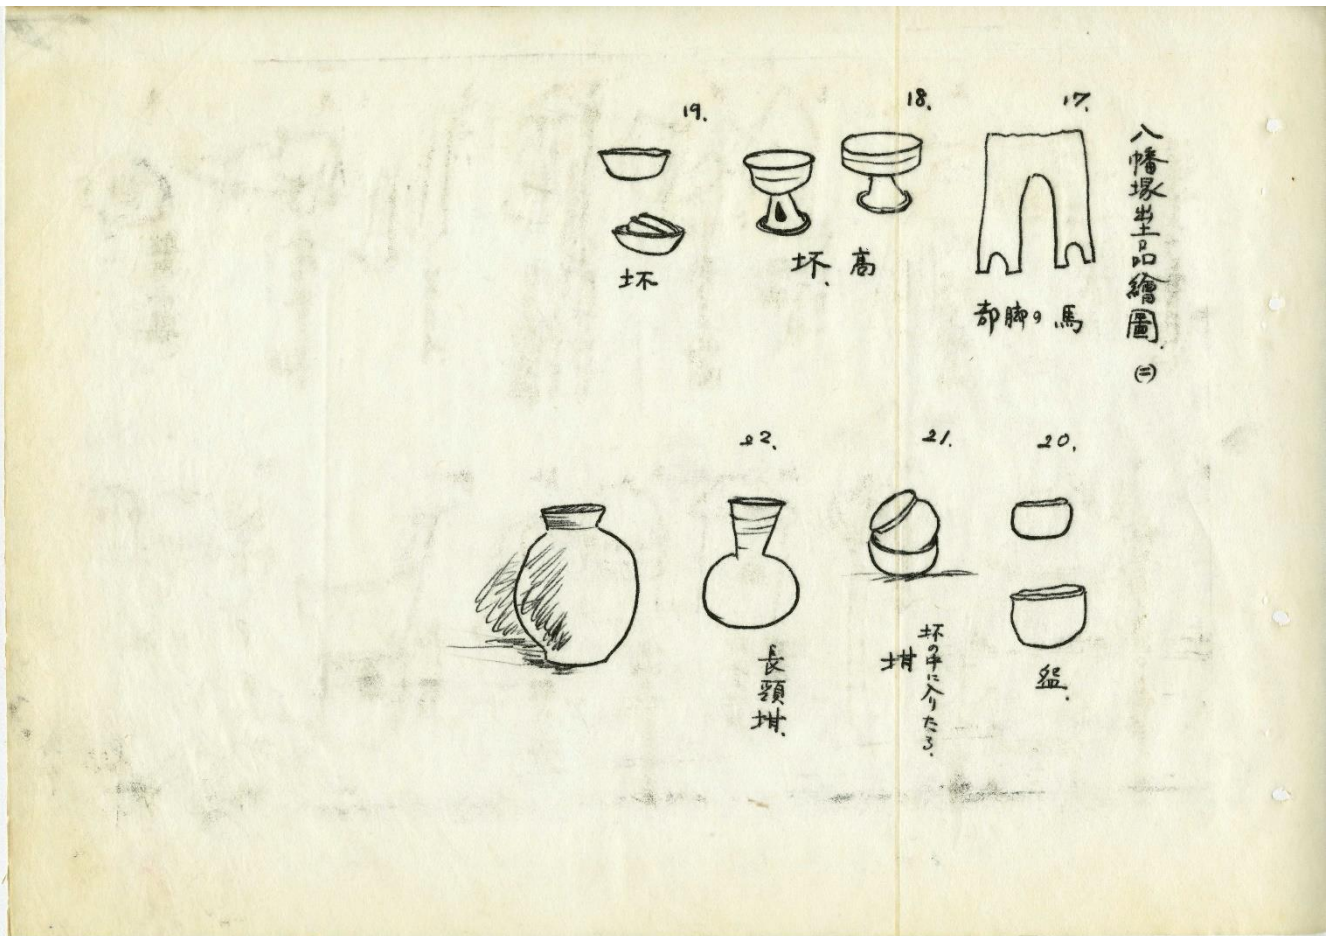 八幡塚出土品繪圖. (二)
17.
馬の脚部
18.
高坏.
19.
坏
20.
盌.
21.
坏の中に入りたる.
坩
22.
長頸坩.